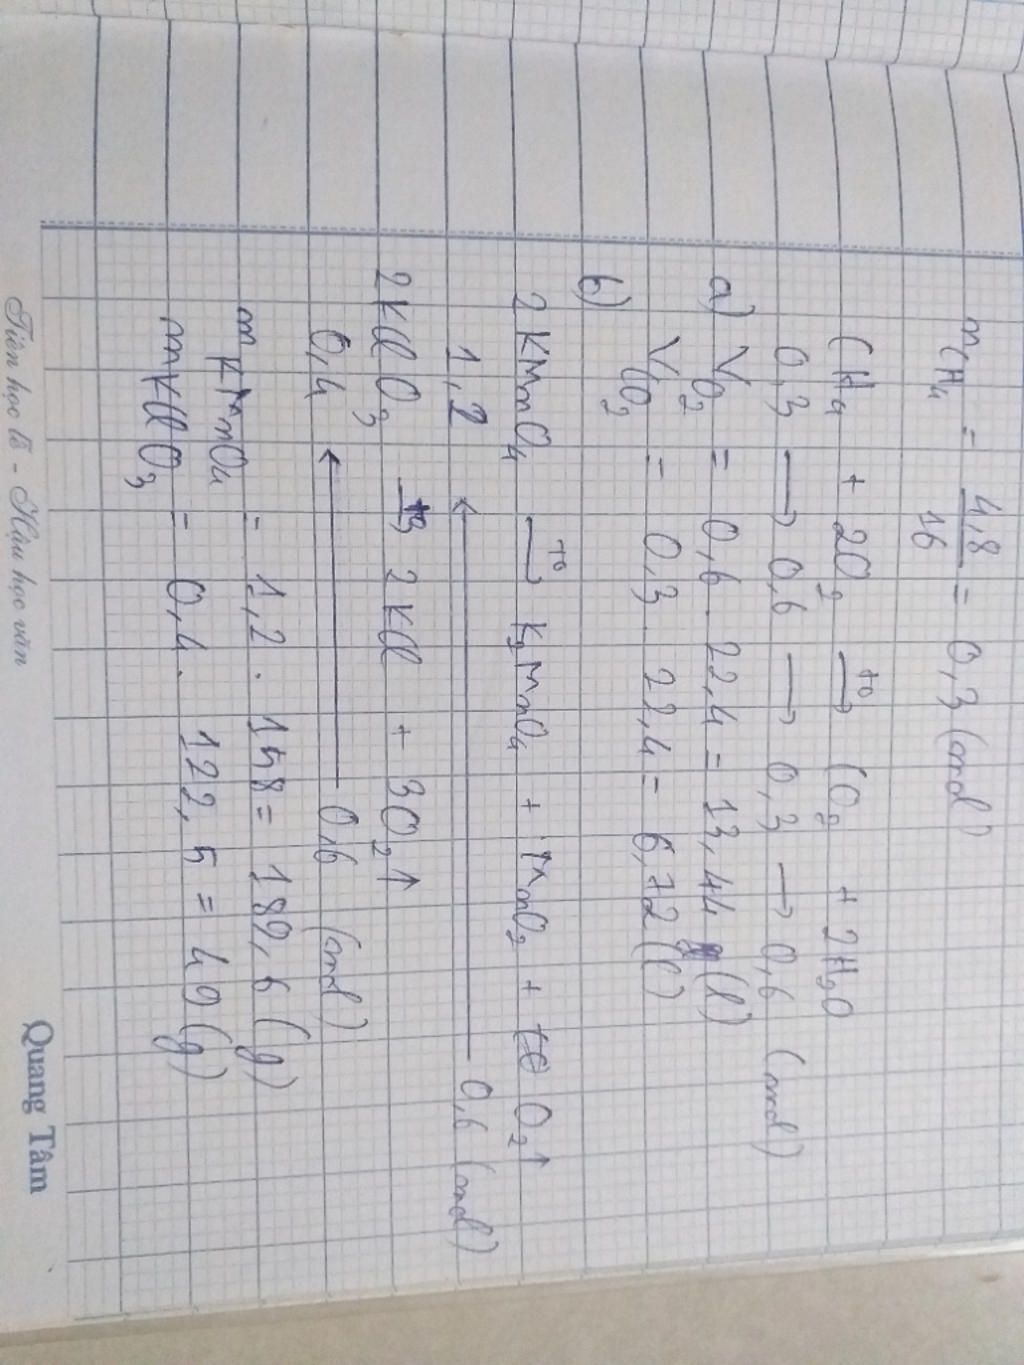 nCH₄ = 4,8/16 = 0,3 (mol)
CH₄ + 2O₂ →(t⁰) CO₂ + 2H₂O
0,3 → 0,6 → 0,3 → 0,6 (mol)
a) VO₂ = 0,6 . 22,4 = 13,44 (l)
VCO₂ = 0,3 . 22,4 = 6,72 (l)
b)
2KMnO₄ →(t⁰) K₂MnO₄ + MnO₂ + O₂↑
1,2 ← 0,6 (mol)
2KClO₃ →(t⁰) 2KCl + 3O₂↑
0,4 ← 0,6 (mol)
mKMnO₄ = 1,2 . 158 = 189,6 (g)
mKClO₃ = 0,4 . 122,5 = 49 (g)
Tiên học lễ - Hậu học văn
Quang Tâm